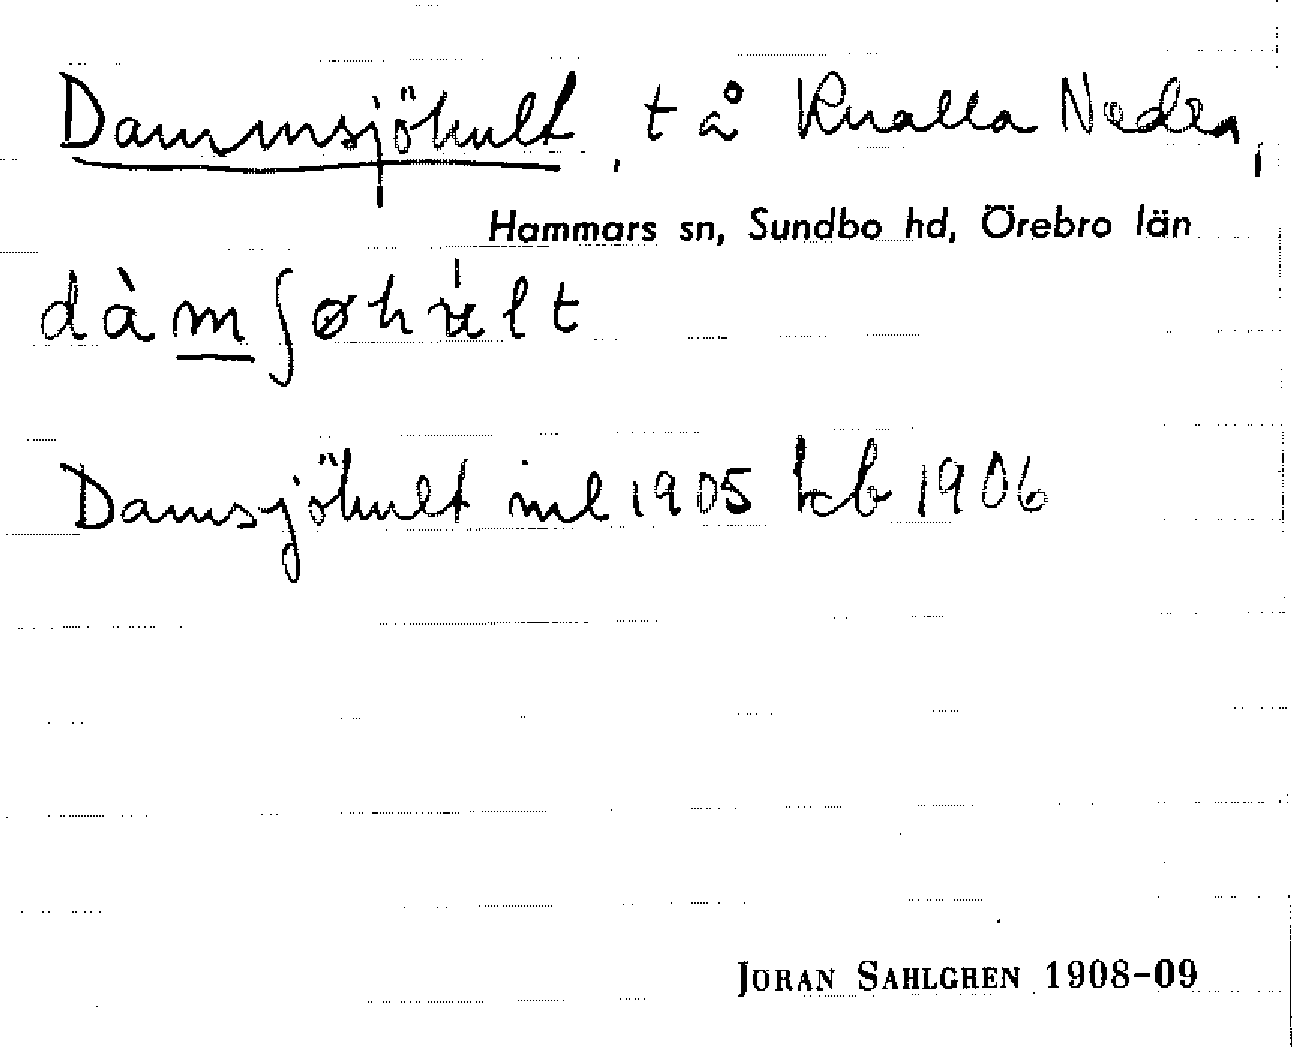 Dammsjöhult, t å Knalla Nedra,
Hammars sn, Sundbo hd, Örebro län
dàmʃøhu̍lt
Damsjöhult inl 1905 kb 1906
JÖRAN SAHLGREN 1908-09